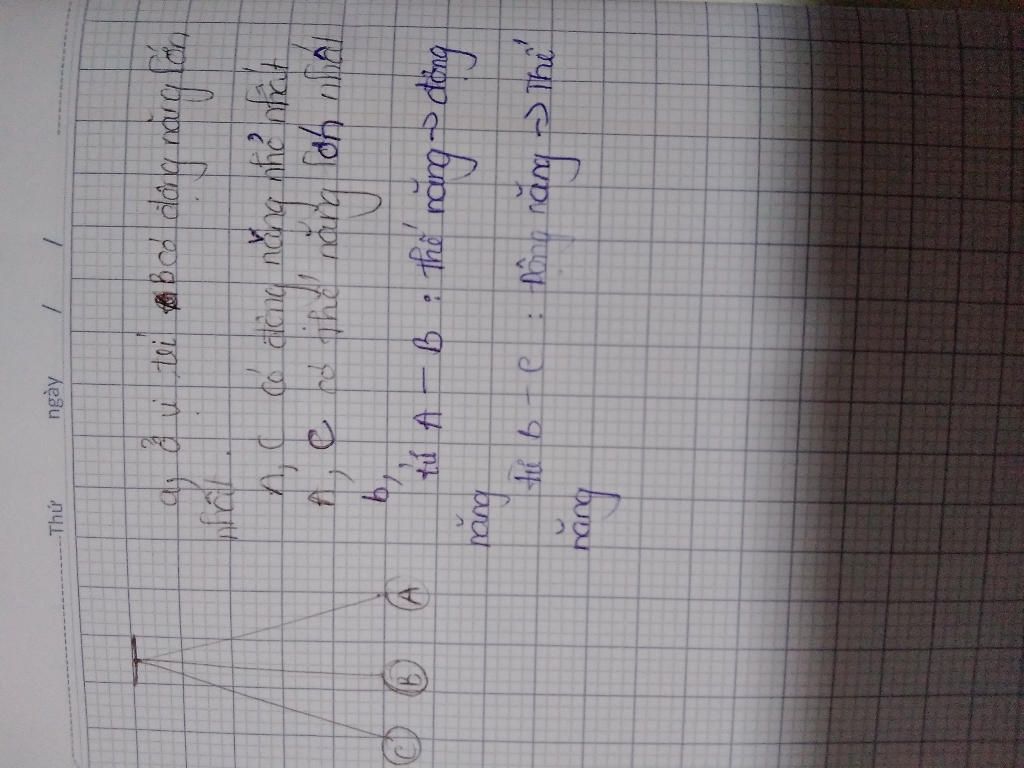 Thứ ngày / /
a, ở vị trí B có động năng lớn
nhất.
A, C có động năng nhỏ nhất
A, C có thế năng lớn nhất
b,
từ A - B : thế năng -> động
năng
từ B - C : Động năng -> Thế
năng
C B A